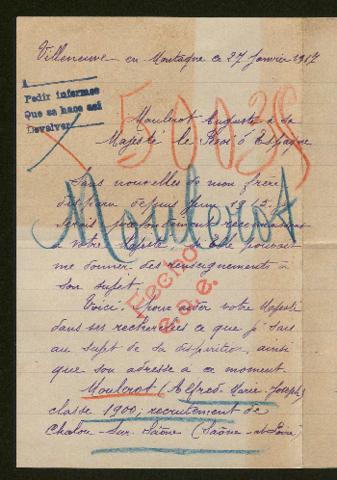 Villeneuve en Montagne ce 27 Janvier 1917
A
Pedir informes
Que se hace así
Devolver
50038
Moulerot Auguste à sa
Majesté le Roi d'Espagne
Moulerot
Sans nouvelles de mon frère
disparu depuis Juin 1915.
votre Majesté, si elle pouvait
me donner des renseignements à
son sujet.
Fecho
e.o.e.
Voici: pour aider votre Majesté
dans ses recherches ce que j'sais
au sujet de sa disparition, ainsi
que son adresse à ce moment.
Moulerot (Alfred-Marie-Joseph)
classe 1900, recrutement de
Chalon-Sur-Saône (Saône-et-Loire)